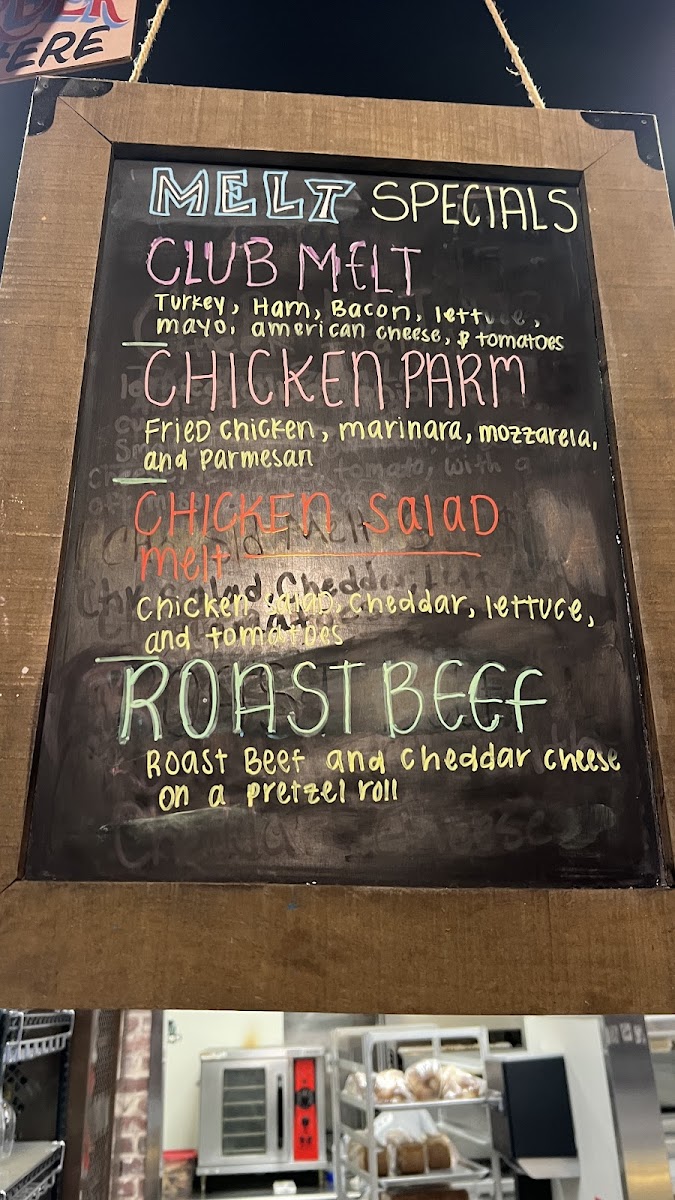 ERE
MELT SPECIALS
CLUB MELT
Turkey, Ham, Bacon, lettuce,
mayo, american cheese, & tomatoes
CHICKEN PARM
Fried chicken, marinara, mozzarela,
and Parmesan
CHICKEN Salad
melt
Chicken salad, cheddar, lettuce,
and tomatoes
ROAST BEEF
Roast Beef and cheddar cheese
on a pretzel roll